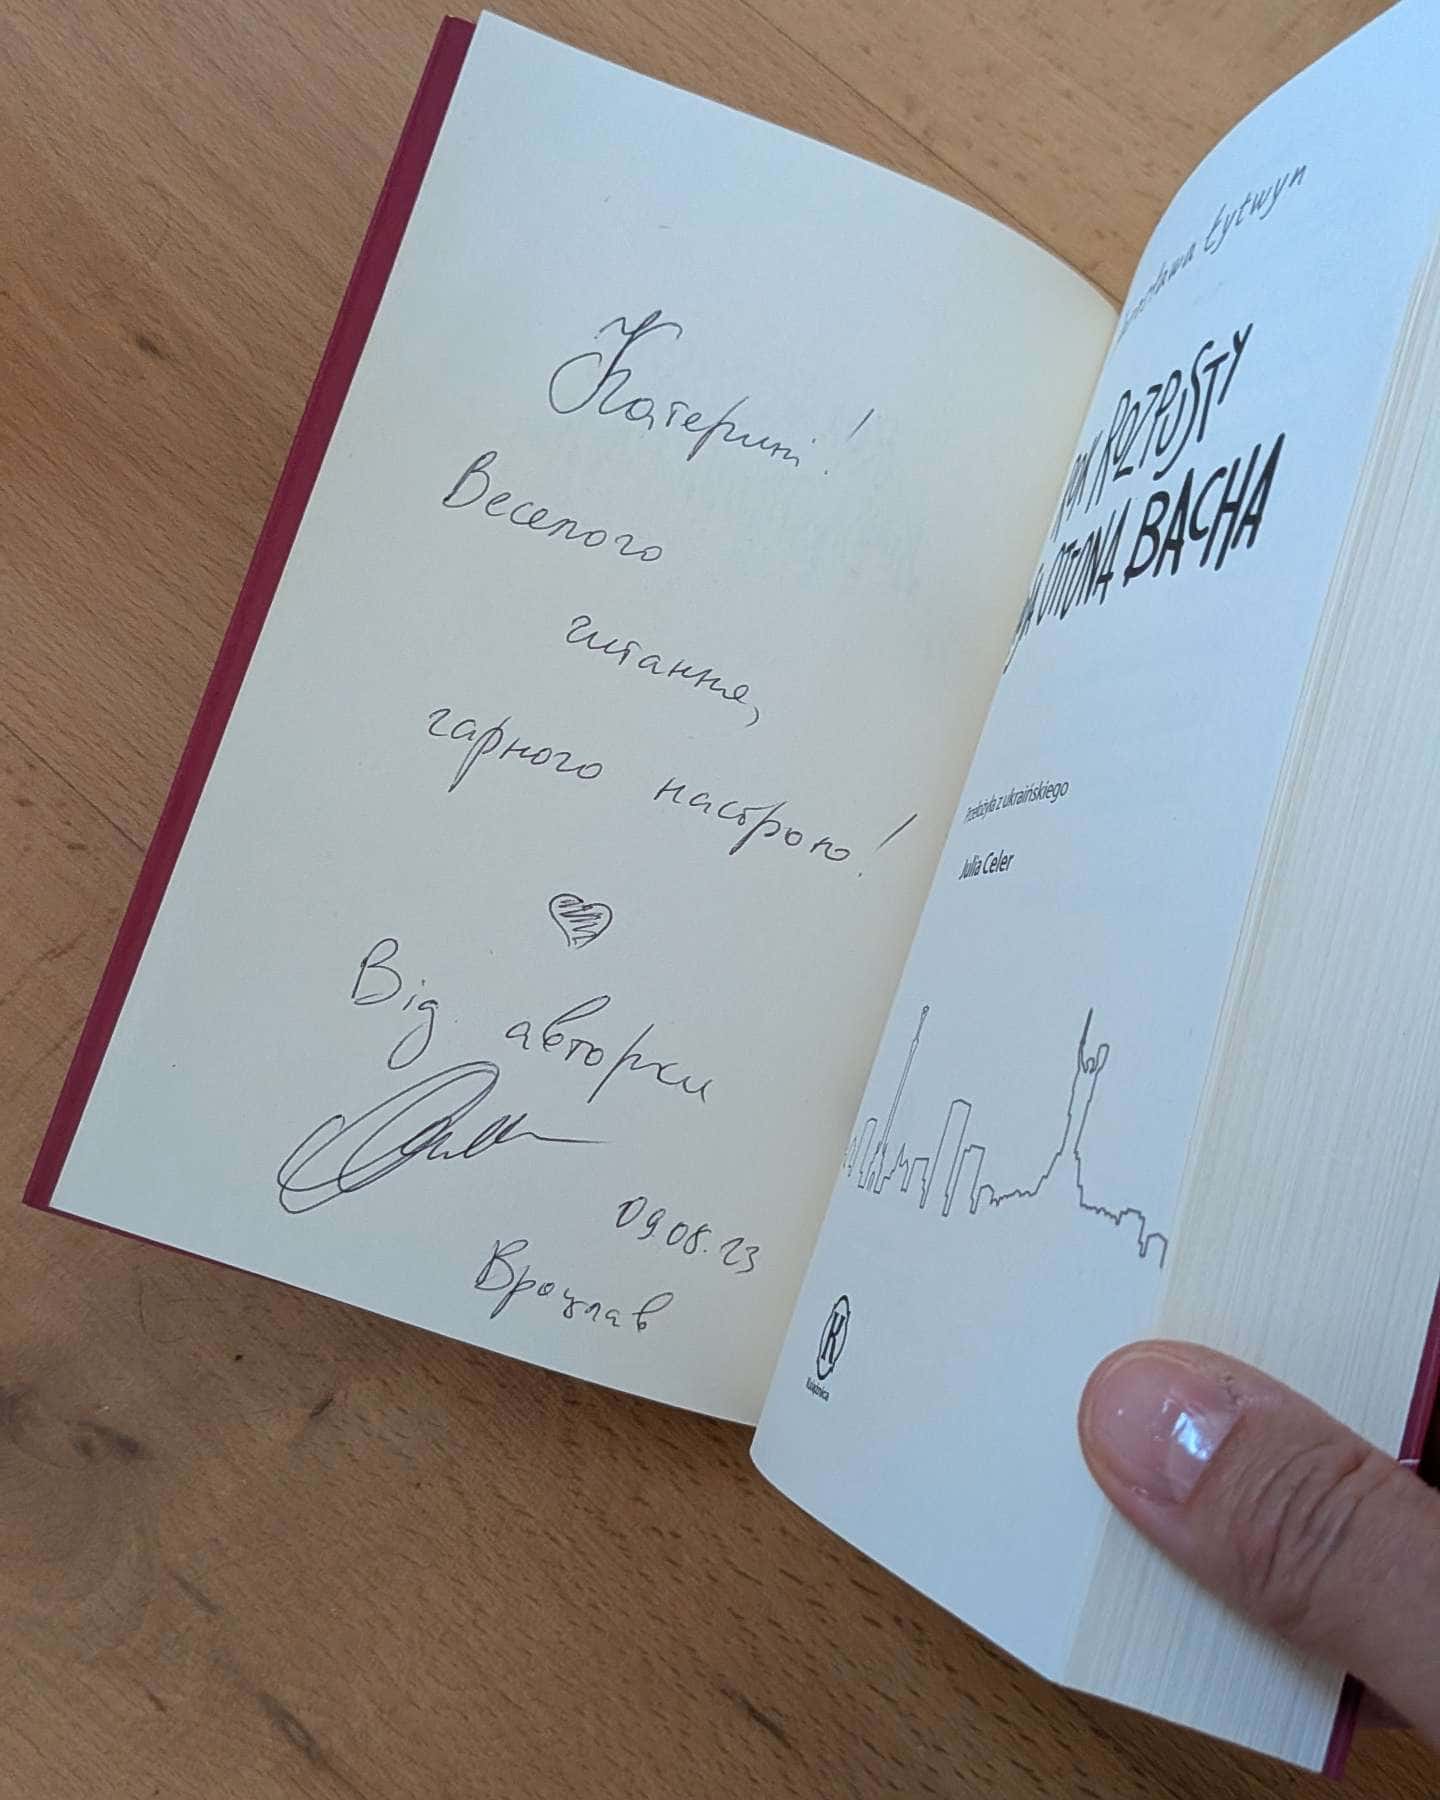 Катерині!
Веселого
читання,
гарного настрою!
Від авторки
09.08.23
Вроцлав
Łytwyn
ROZPUSTY
OTTONA BACHA
Przełożyła z ukraińskiego
Julia Celer
K
Książnica